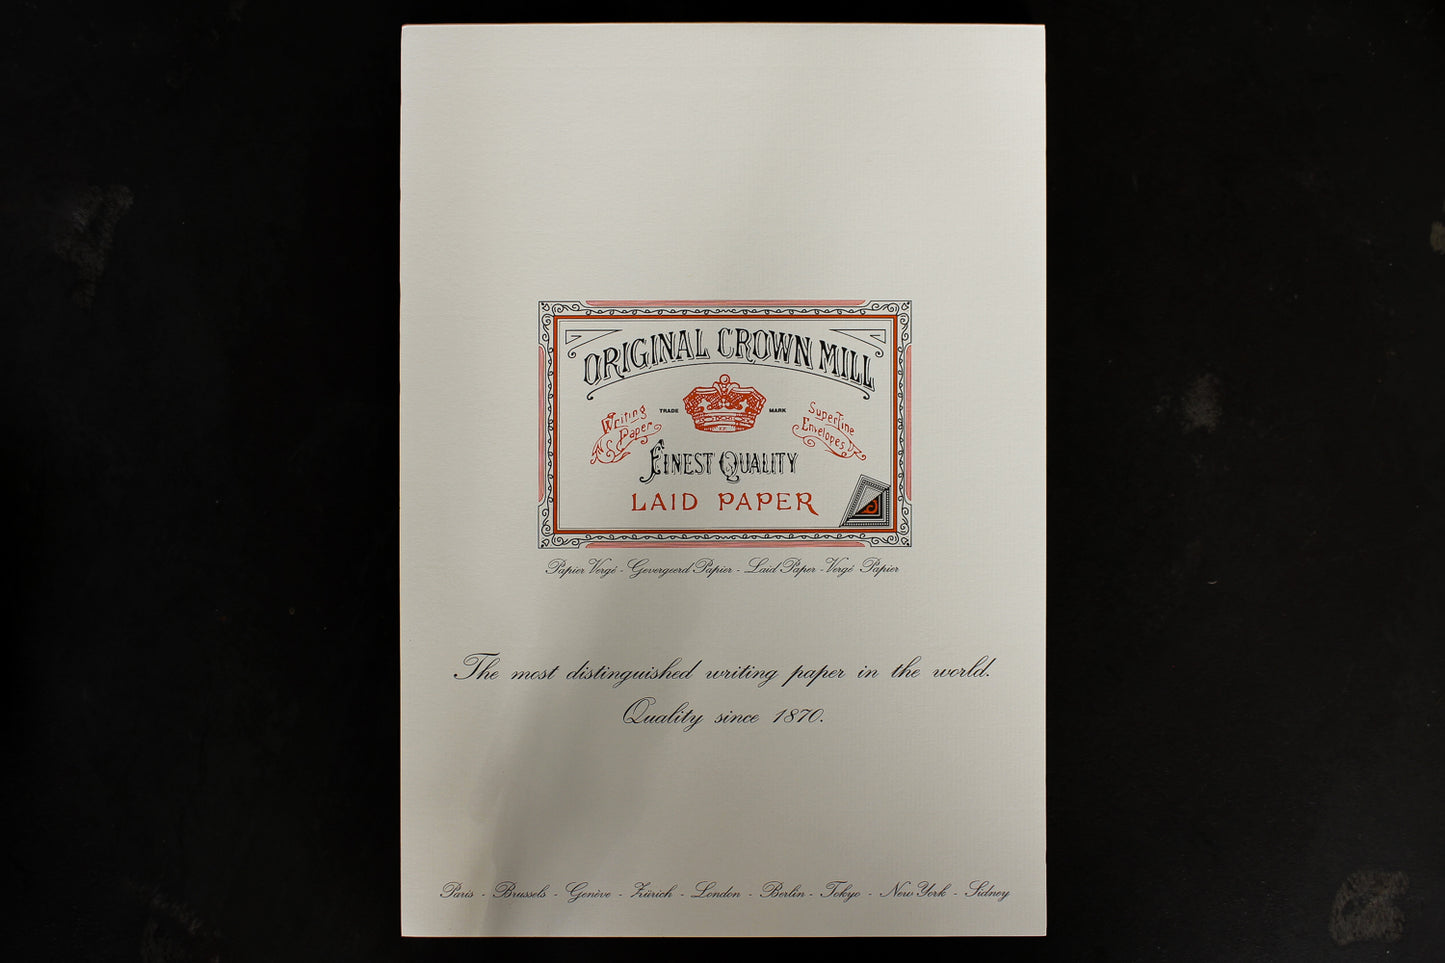 ORIGINAL CROWN MILL
TRADE MARK
Writing Paper
Superfine Envelopes
FINEST QUALITY
LAID PAPER
Papier Vergé - Gevergeerd Papier - Laid Paper - Vergé Papier
The most distinguished writing paper in the world.
Quality since 1870.
Paris - Brussels - Genève - Zürich - London - Berlin - Tokyo - New York - Sidney